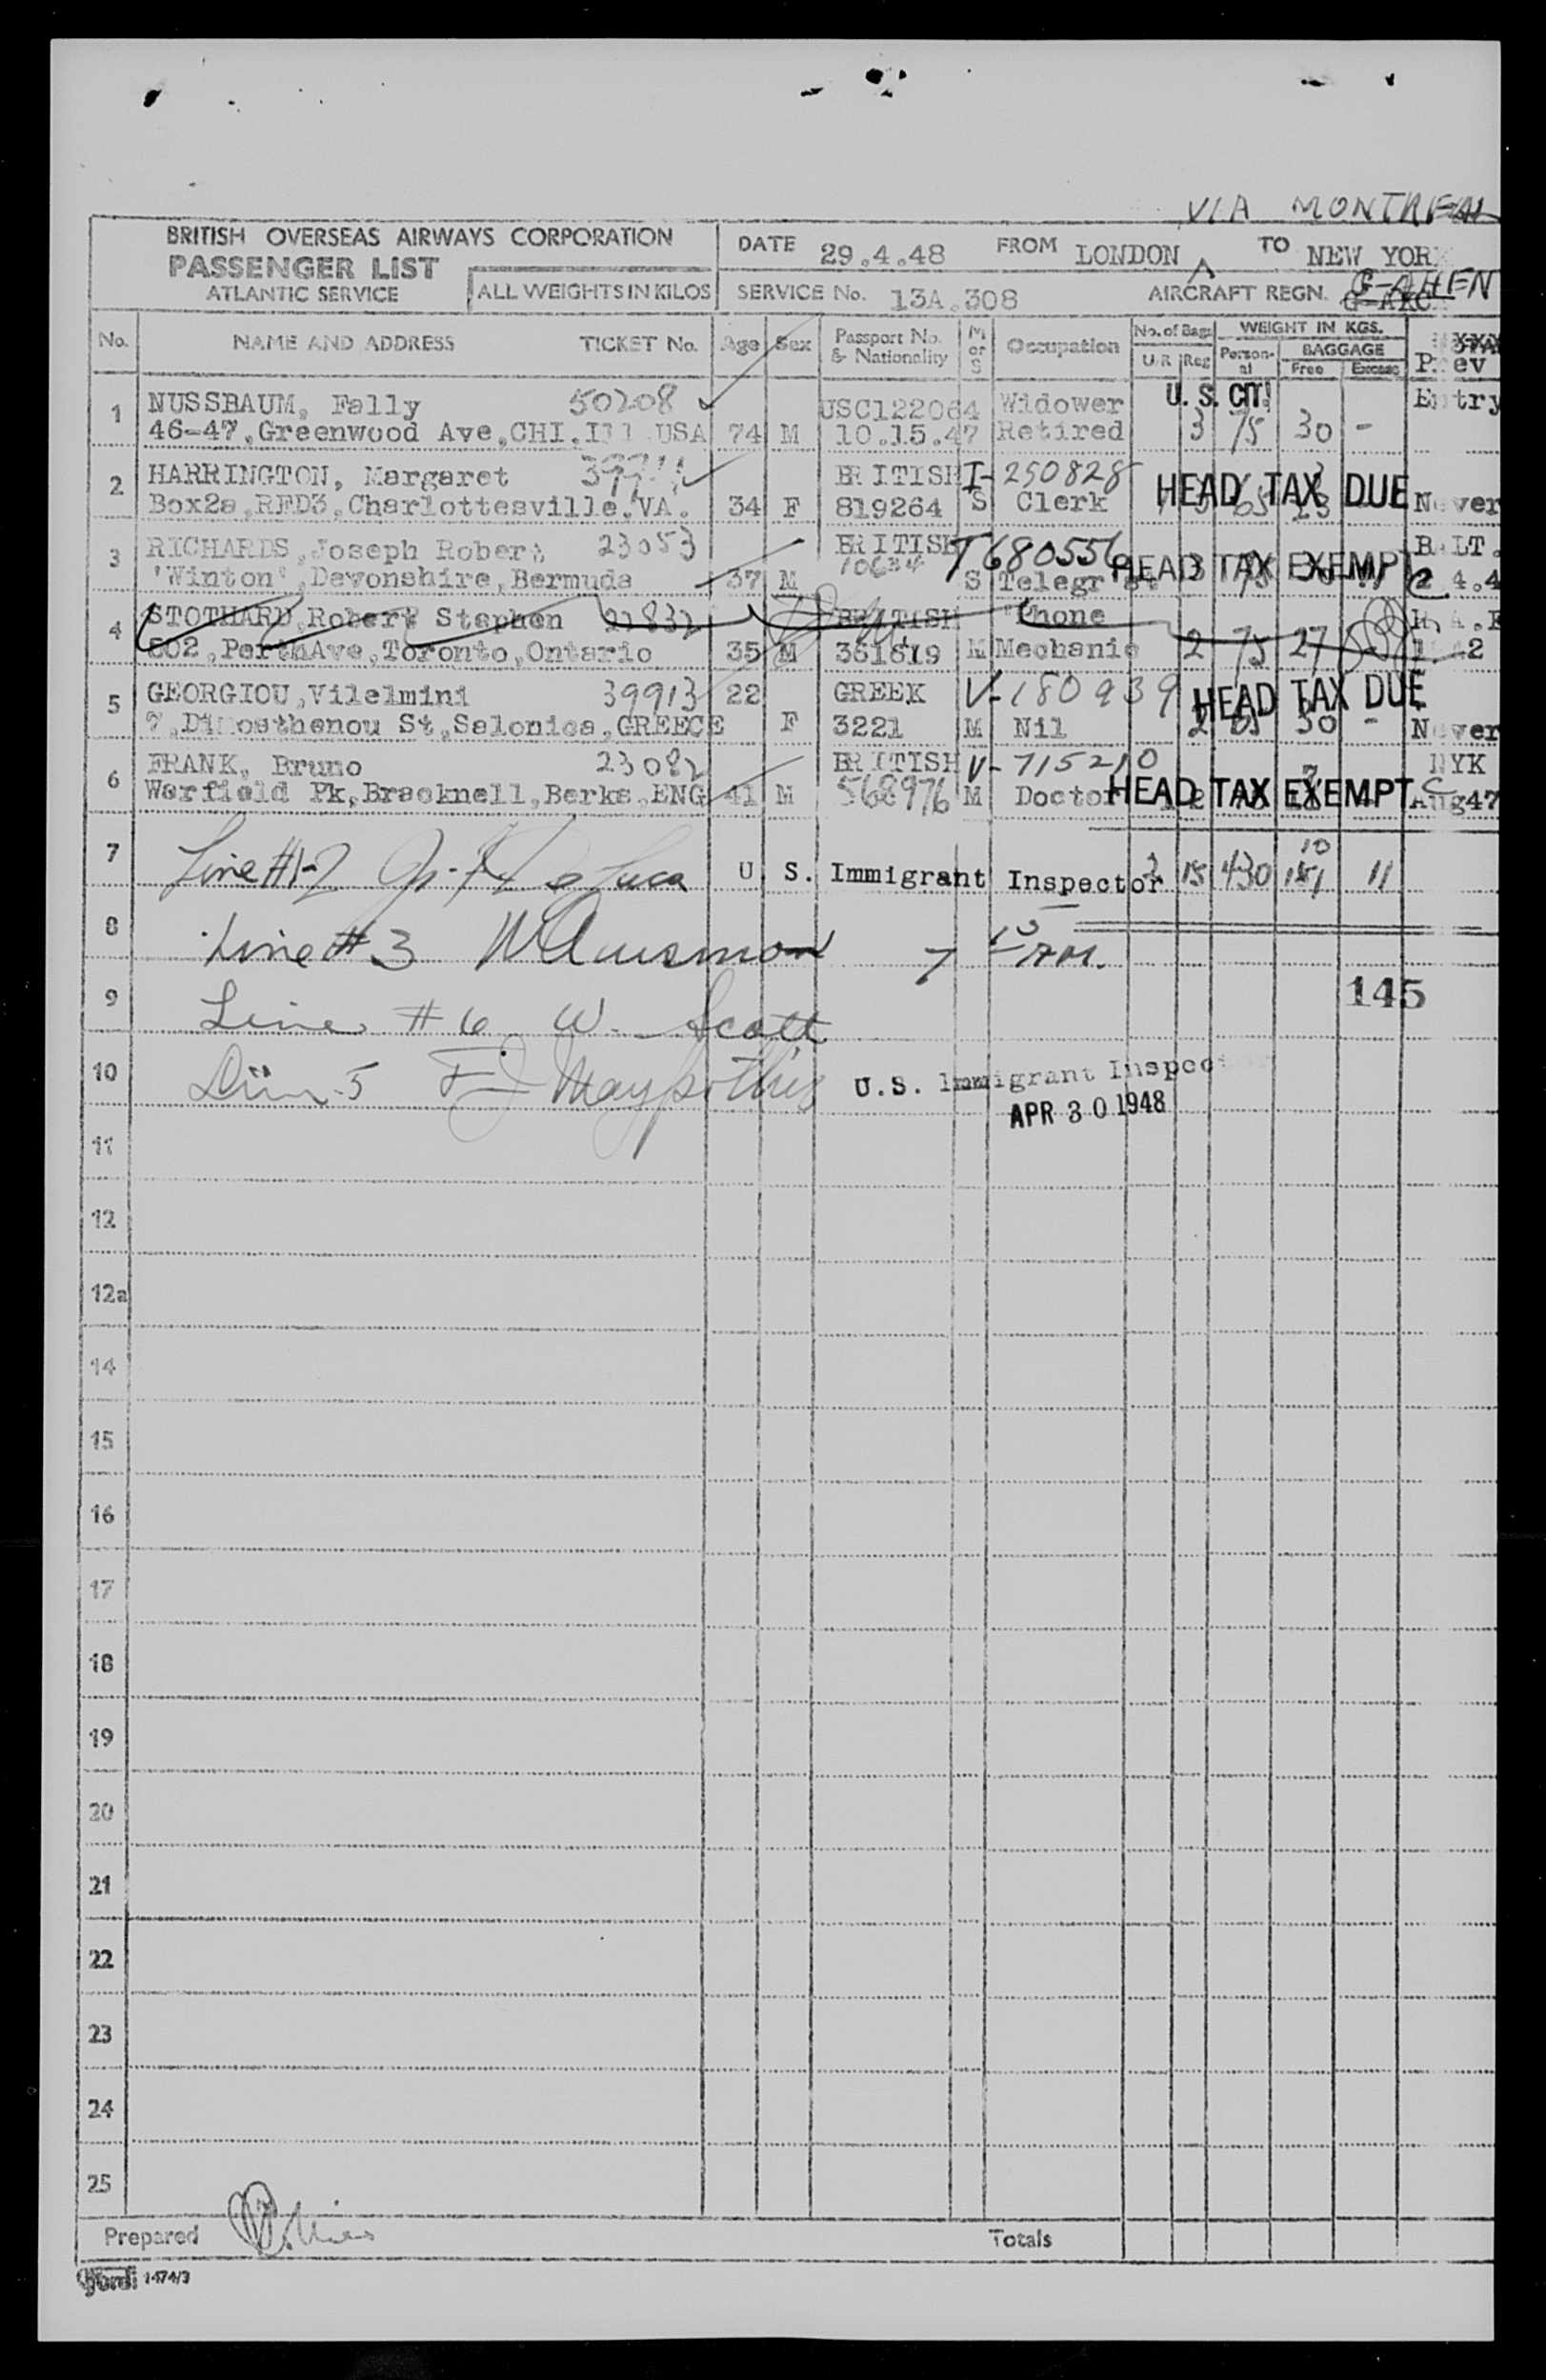 VIA MONTREAL
BRITISH OVERSEAS AIRWAYS CORPORATION
PASSENGER LIST
ATLANTIC SERVICE
ALL WEIGHTS IN KILOS
DATE 29.4.48 FROM LONDON TO NEW YORK
SERVICE No. 13A.308 AIRCRAFT REGN. G-AHEN
No. NAME AND ADDRESS TICKET No. Age Sex Passport No. & Nationality M or S Occupation No. of Bags U/R Reg WEIGHT IN KGS. Personal BAGGAGE Free Excess Prev
1 NUSSBAUM, Fally 50208 USC122064 Widower U. S. CIT. Entry
46-47, Greenwood Ave, CHI. Ill USA 74 M 10.15.47 Retired 3 75 30 -
2 HARRINGTON, Margaret BRITISH I-250828 HEAD TAX DUE
Box2a, RFD3, Charlottesville, VA. 34 F 819264 S Clerk Never
3 RICHARDS, Joseph Robert 23053 BRITISH T680556 HEAD TAX EXEMPT BALT.
'Winton', Devonshire, Bermuda 37 M S
4 STOTHARD, Robert Stephen 22832 BRITISH Phone
602, Perth Ave, Toronto, Ontario 35 M 361819 M Mechanic 2 75 27
5 GEORGIOU, Vilelmini 39913 22 GREEK V-180939 HEAD TAX DUE
7, Dimosthenou St, Salonica, GREECE F 3221 M Nil 2 65 30 - Never
6 FRANK, Bruno 23082 BRITISH V-715210 NYK
Warfield Pk, Bracknell, Berks, ENG 41 M 568976 M Doctor HEAD TAX EXEMPT Aug47
7 Line #1-2 U. S. Immigrant Inspector 15 430 11
8 Line #3
9 Line #6 W. Scott 145
10 U.S. Immigrant Inspector
APR 30 1948
11
12
12a
14
15
16
17
18
19
20
21
22
23
24
25
Prepared Totals
1474/3